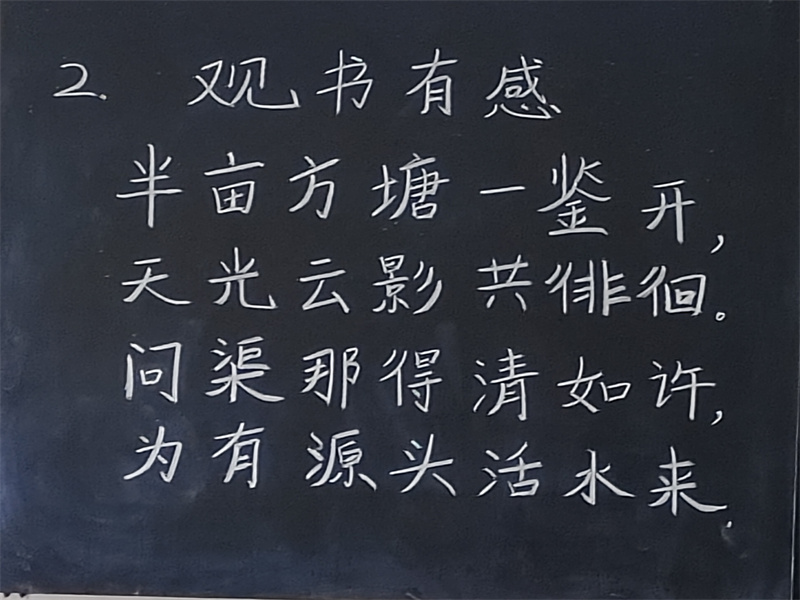 2. 观书有感
半亩方塘一鉴开，
天光云影共徘徊。
问渠那得清如许，
为有源头活水来.